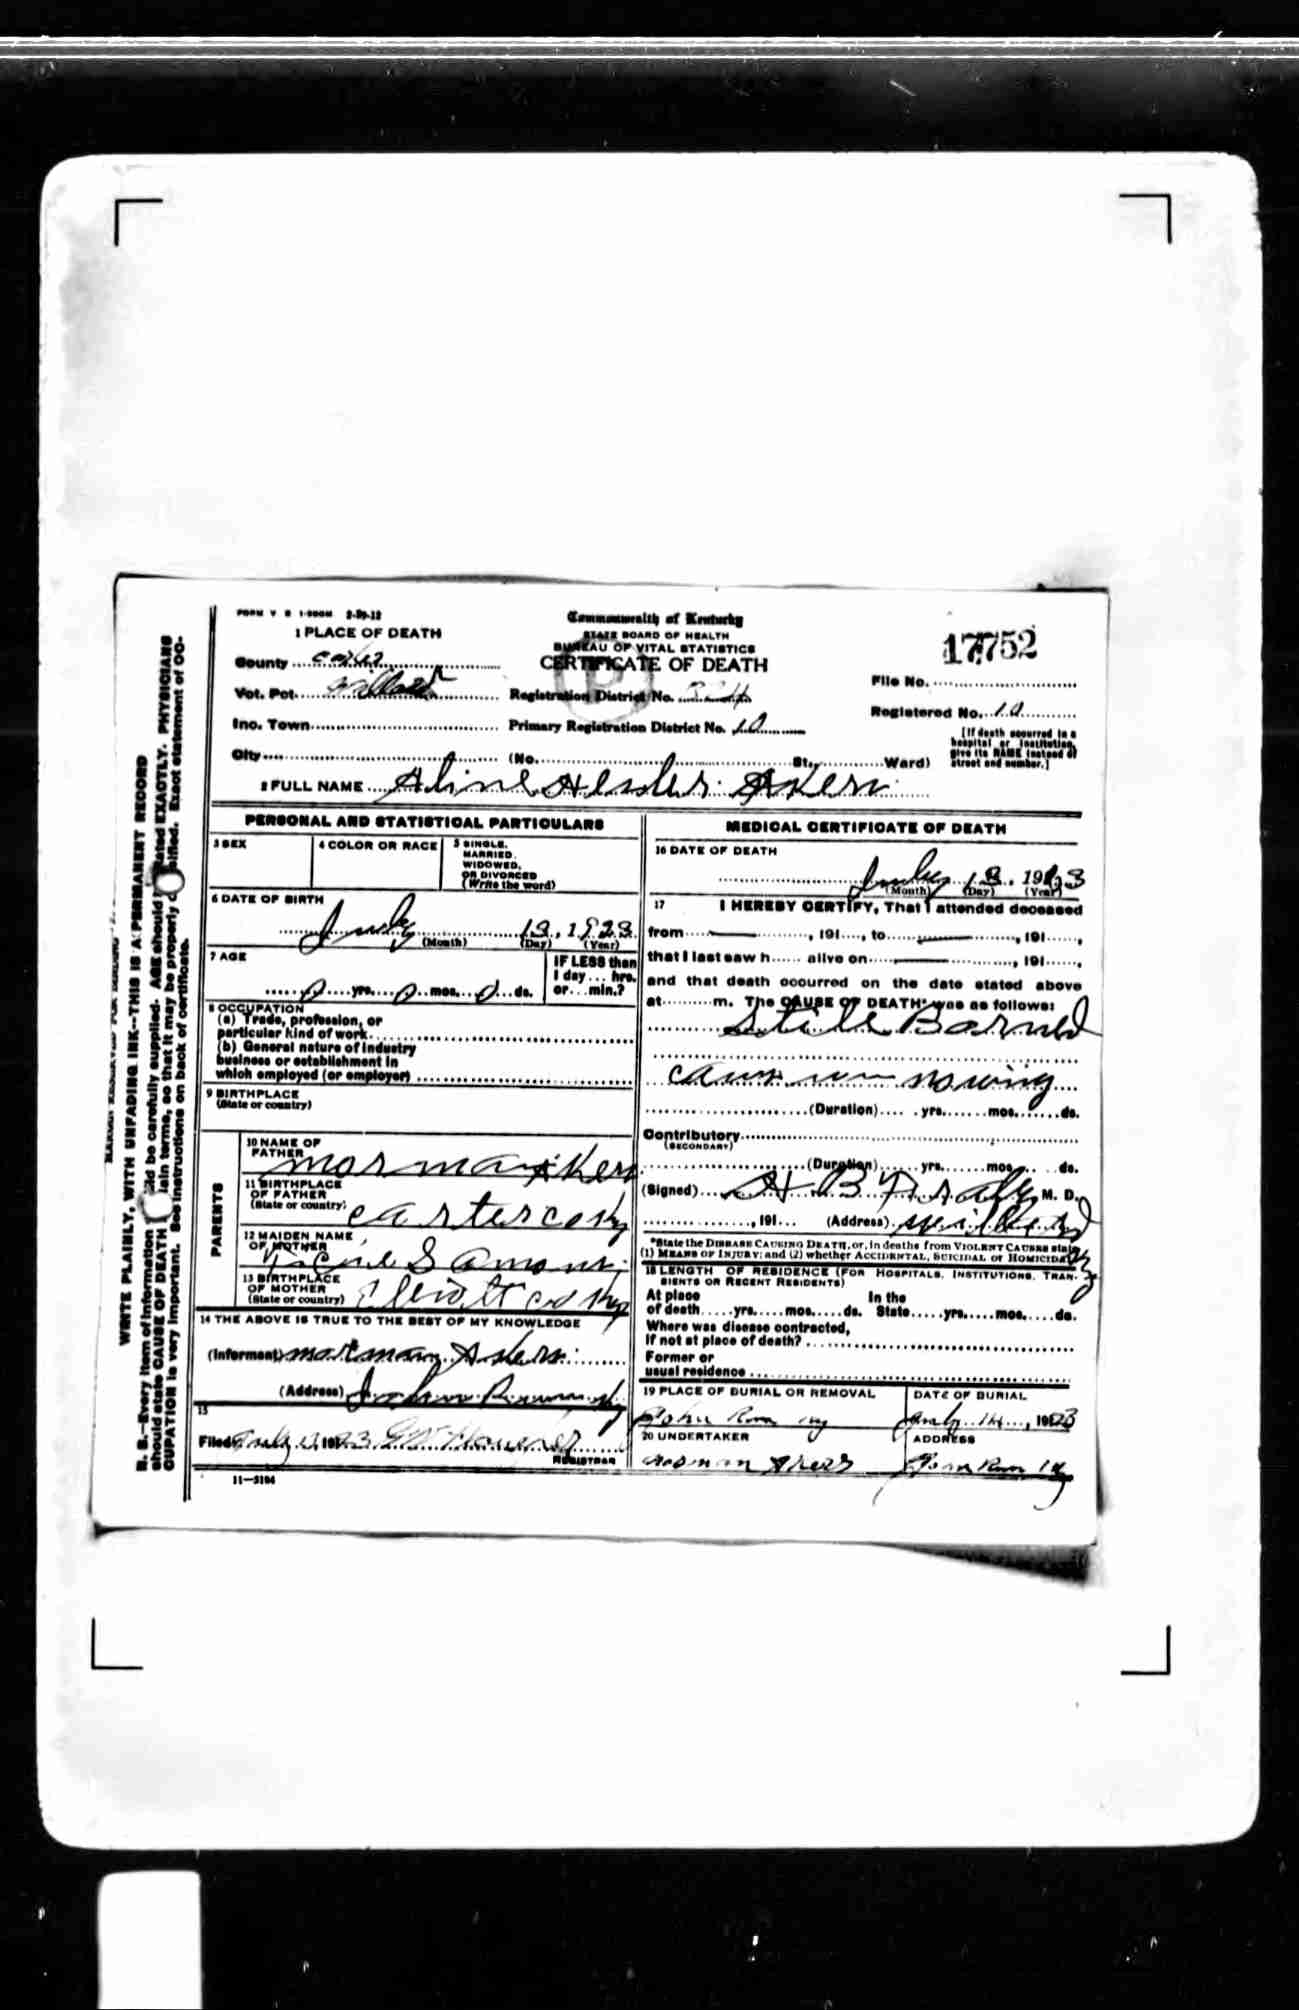 FORM V S 1-500M 2-29-12
Commonwealth of Kentucky
STATE BOARD OF HEALTH
BUREAU OF VITAL STATISTICS
CERTIFICATE OF DEATH
17752
1 PLACE OF DEATH
County Carter
Vot. Pct. Willard
Inc. Town
City
Registration District No.
Primary Registration District No. 10
(No. St., Ward)
File No.
Registered No. 10
[If death occurred in a
hospital or institution,
give its NAME instead of
street and number.]
2 FULL NAME Aline Hesler Akers
PERSONAL AND STATISTICAL PARTICULARS
3 SEX
4 COLOR OR RACE
5 SINGLE,
MARRIED,
WIDOWED,
OR DIVORCED
(Write the word)
6 DATE OF BIRTH
July 13, 1923
(Month) (Day) (Year)
7 AGE
0 yrs. 0 mos. 0 ds.
IF LESS than
1 day ... hrs.
or ... min.?
8 OCCUPATION
(a) Trade, profession, or
particular kind of work
(b) General nature of industry
business or establishment in
which employed (or employer)
9 BIRTHPLACE
(State or country)
PARENTS
10 NAME OF
FATHER
Norman Akers
11 BIRTHPLACE
OF FATHER
(State or country)
Carter co Ky
12 MAIDEN NAME
OF MOTHER
Samons
13 BIRTHPLACE
OF MOTHER
(State or country)
Elliott co Ky
14 THE ABOVE IS TRUE TO THE BEST OF MY KNOWLEDGE
(Informant) Norman Akers
(Address) Johns Run Ky
15
Filed July 13 1923
REGISTRAR
11—5104
MEDICAL CERTIFICATE OF DEATH
16 DATE OF DEATH
July 13, 1923
(Month) (Day) (Year)
17 I HEREBY CERTIFY, That I attended deceased
from , 191 , to , 191 ,
that I last saw h alive on , 191 ,
and that death occurred on the date stated above
at m. The CAUSE OF DEATH* was as follows:
Still Borned
(Duration) yrs. mos. ds.
Contributory
(SECONDARY)
(Duration) yrs. mos. ds.
(Signed) H B M. D.
, 191 (Address) Willard Ky
*State the DISEASE CAUSING DEATH, or, in deaths from VIOLENT CAUSES state
(1) MEANS OF INJURY; and (2) whether ACCIDENTAL, SUICIDAL or HOMICIDAL
18 LENGTH OF RESIDENCE (FOR HOSPITALS, INSTITUTIONS, TRAN-
SIENTS OR RECENT RESIDENTS)
At place In the
of death yrs. mos. ds. State yrs. mos. ds.
Where was disease contracted,
If not at place of death?
Former or
usual residence
19 PLACE OF BURIAL OR REMOVAL
Johns Run Ky
DATE OF BURIAL
July 14, 1923
20 UNDERTAKER
Norman Akers
ADDRESS
Johns Run Ky
WRITE PLAINLY, WITH UNFADING INK--THIS IS A PERMANENT RECORD
N. B.—Every item of information should be carefully supplied. AGE should be stated EXACTLY. PHYSICIANS
should state CAUSE OF DEATH in plain terms, so that it may be properly classified. Exact statement of OC-
CUPATION is very important. See instructions on back of certificate.